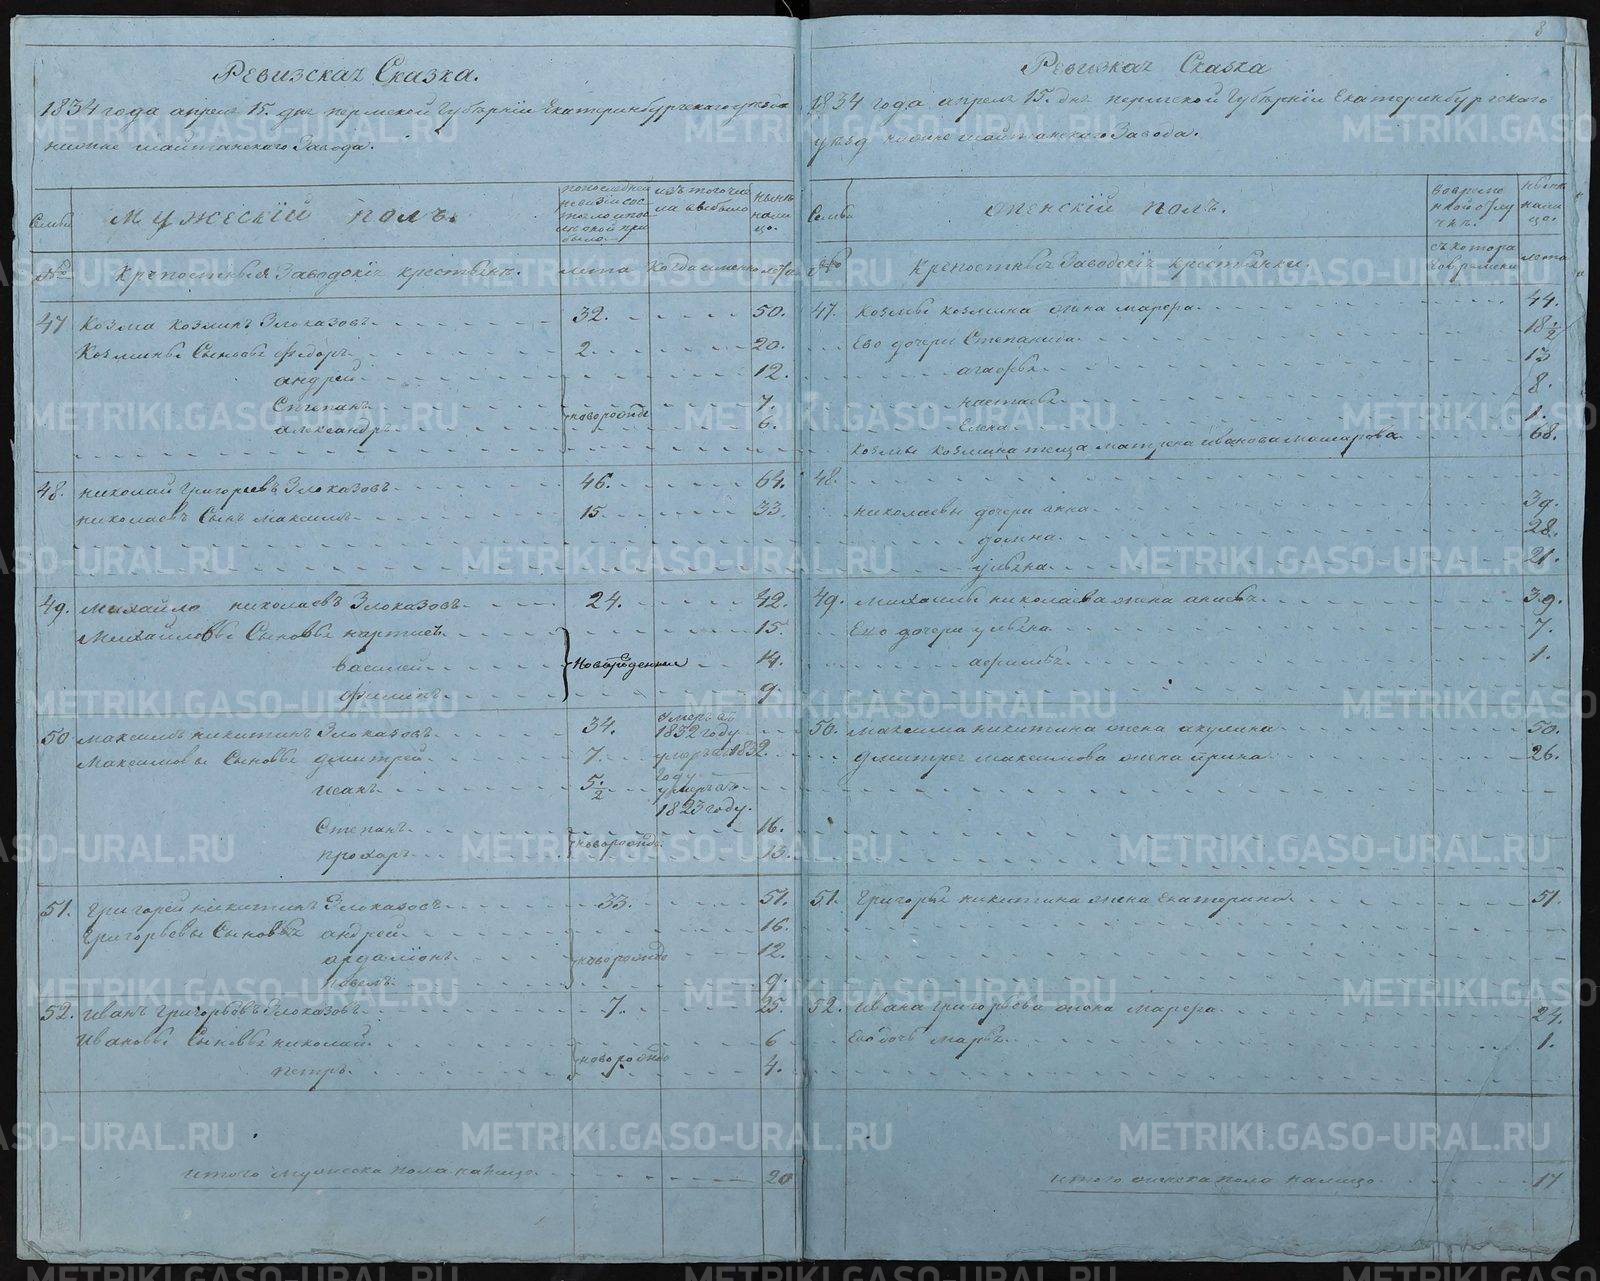 8
Ревизская Сказка.
1834 года апреля 15. дня пермской Губѣрнiи Екатринбургскаго уѣзда
нижне шайтанскаго Завода.
Семьи
Мужескiй полъ.
попоследней ревизiи состояло ипосле оной прибыло
изъ того числа выбыло
нынѣ на лицо.
№
Крѣпостныя Заводскiя крестьянъ.
лета
Когда именно
лета
47 Козма козминъ Злоказовъ 32. 50.
Козмины Сыновья Федоръ 2. 20.
андрей 12.
Степанъ новорожде 7.
александръ 6.
48. николай Григорьевъ Злоказовъ 46. 64.
николаевъ Сынъ максимъ 15. 33
49. михайло николаевъ Злоказовъ 24. 42.
Михайловы Сыновья 15.
василей Новорожденныи 14.
Филипъ 9.
50 максимъ никитинъ Злоказовъ 34. умеръ въ 1832 году
Максимовы Сыновья дмитрей 7. умеръ въ 1832 году
иванъ 5 1/2 умеръ въ 1823 году.
Степанъ новорожд 16.
прохаръ 13.
51. Григорей никитинъ Злоказовъ 33. 51.
Григорьевы Сыновья андрей 16.
ардалiонъ новорожде 12.
павелъ 9.
52. иванъ Григорьевъ Злоказовъ 7. 25.
Ивановы Сыновья николай новорожде 6
петръ 4.
итого мужеска пола налицо 20
Ревизкая Сказка
1834 года апреля 15. дня пермской Губѣрнiи Екатеринбургского
уѣзд нижне шайтанскаго Завода.
Семьи
женскiй полъ.
вовремянной отлучкѣ.
нынѣ налицо.
№
Крѣпостныя Заводскiя крестьянки.
съкотораго времени
лета
47. Козмы козмина жена марфа 44.
Ево дочери Степанида 18 1/2
агафья 13
настасья 8.
Елена 1.
Козмы козмина теща матрена иванова 68.
48.
николаевы дочери анна 39.
домна 28.
ульяна 21.
49. михаилы николаева жена анисья 39.
Ево дочери ульяна 7.
афимья 1.
50. максима никитина жена акулина 50.
дмитрея максимова жена ирина 26.
51. Григорья никитина жена Екатерина 51.
52. ивана григорьева жена марфа 24.
Ево дочь марья 1.
итого женска пола налицо 17
METRIKI.GASO-URAL.RU